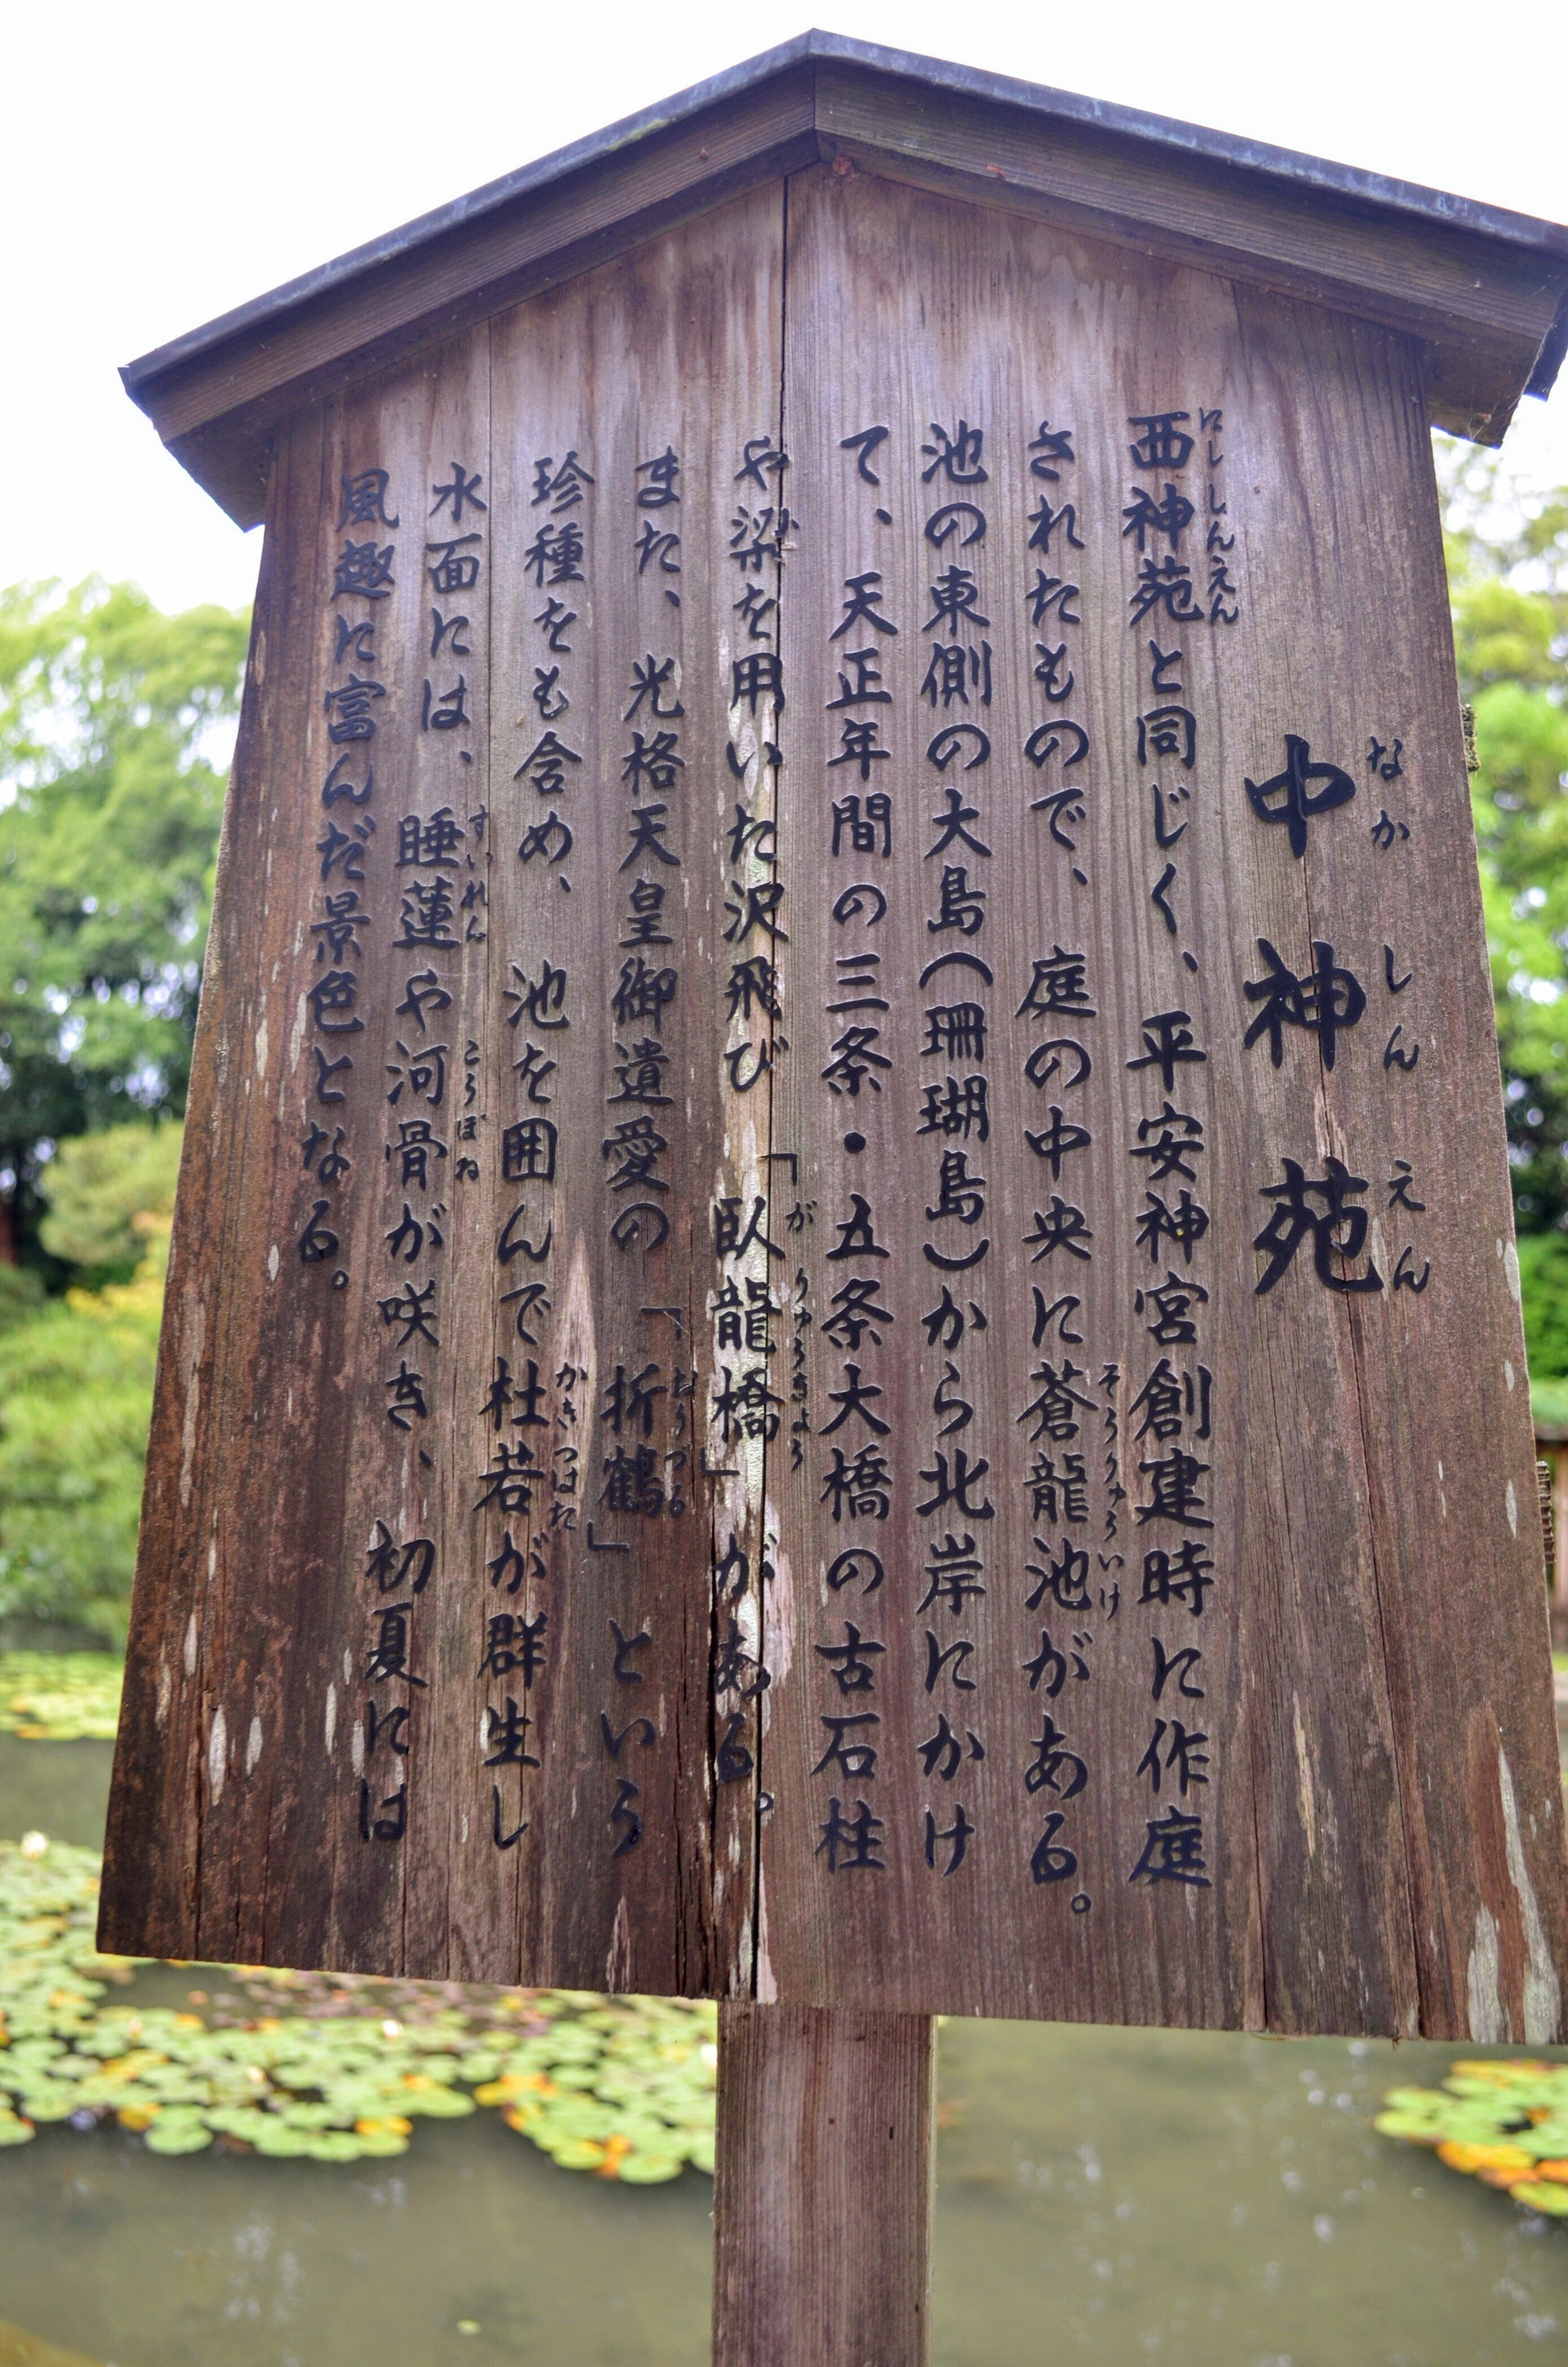 中神苑
なかしんえん
西神苑と同じく、平安神宮創建時に作庭
にししんえん
されたもので、庭の中央に蒼龍池がある。
そうりゅういけ
池の東側の大島(珊瑚島)から北岸にかけ
て、天正年間の三条・五条大橋の古石柱
や梁を用いた沢飛び「臥龍橋」がある。
がりゅうきょう
また、光格天皇御遺愛の「折鶴」という
おりづる
珍種をも含め、池を囲んで杜若が群生し
かきつばた
水面には、睡蓮や河骨が咲き、初夏には
すいれん
こうぼね
風趣に富んだ景色となる。